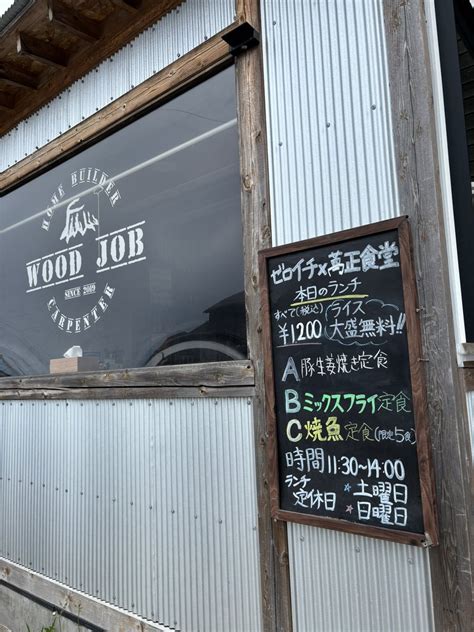 HOME BUILDER
WOOD JOB
SINCE 2019
CARPENTER
ゼロイチ×萬正食堂
本日のランチ
すべて(税込) ライス
¥1200 大盛無料!!
A 豚生姜焼き定食
B ミックスフライ定食
C 焼魚定食(限定5食)
時間 11:30~14:00
ランチ
定休日 ☆土曜日
☆日曜日